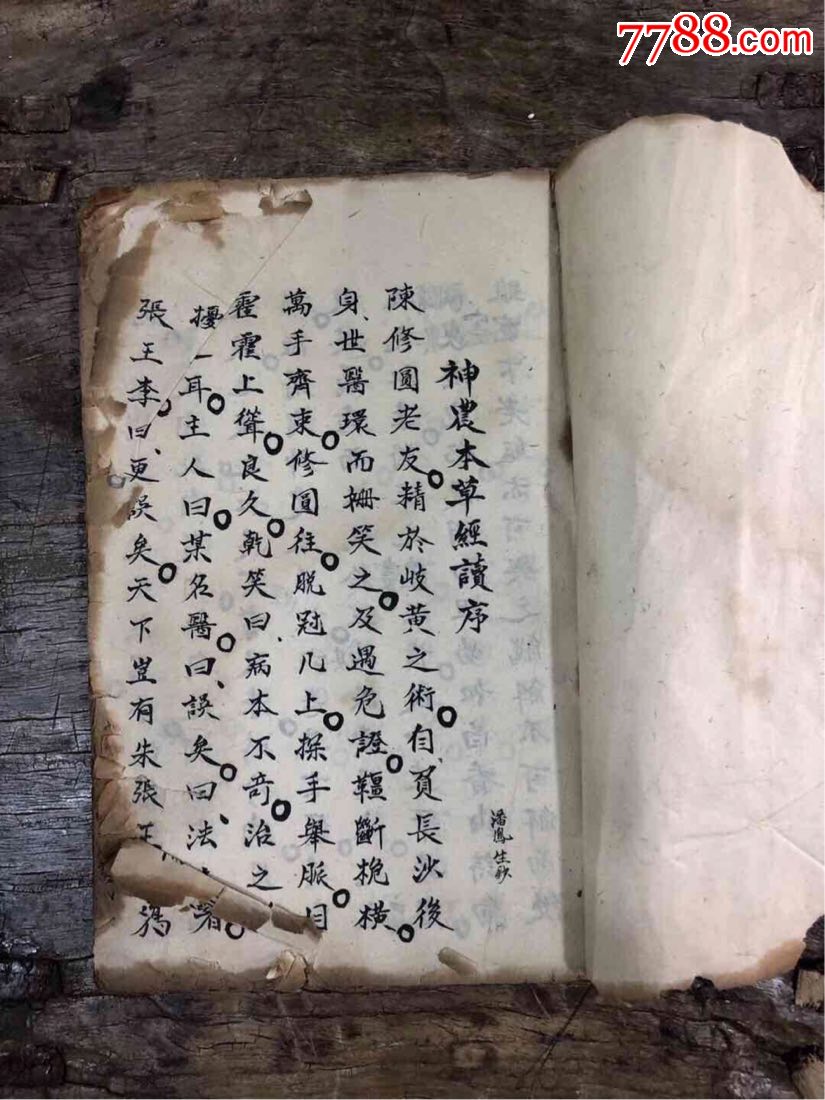 7788.com
神農本草經讀序
潘鳳生欽
陳修圓老友精於岐黄之術自負長沙後
身世醫環而姍笑之及遇危證韁斷桅橫
萬手齊束修圓往脱冠几上探手舉脈目
霍霍上聳良久乾笑曰病本不奇治之
擾一耳主人曰某名醫曰誤矣曰法
張王李曰更誤矣天下豈有朱張王